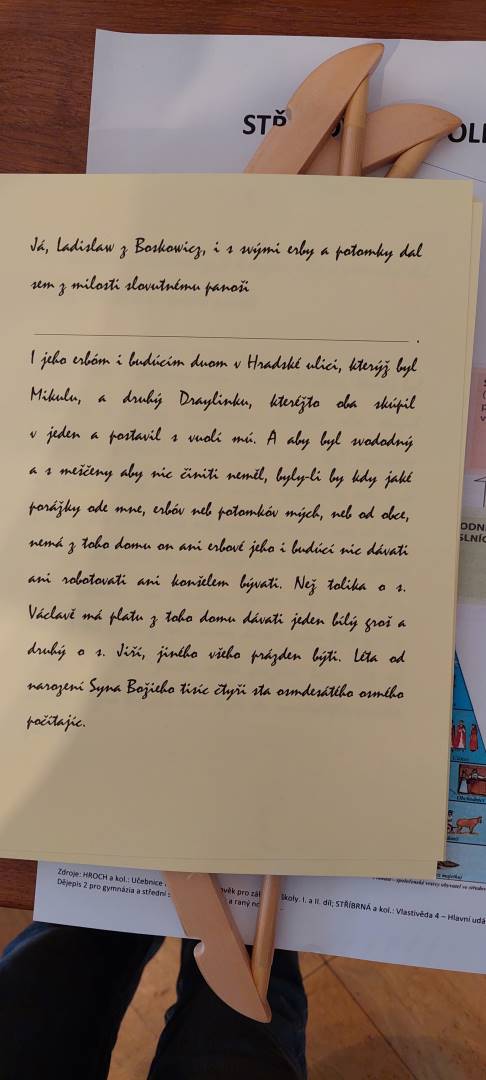 STŘ
OLE
Já, Ladislaw z Boskowicz, i s svými erby a potomky dal
sem z milosti slovutnému panoši
I jeho erbóm i budúcím duom v Hradské ulici, kterýž byl
Mikulu, a druhý Draylinku, kteréžto oba skúpil
v jeden a postavil s vuolí mú. A aby byl svododný
a s meščeny aby nic činiti neměl, byly-li by kdy jaké
porážky ode mne, erbóv neb potomkóv mých, neb od obce,
nemá z toho domu on ani erbové jeho i budúcí nic dávati
ani robotovati ani konšelem bývati. Než tolika o s.
Václavě má platu z toho domu dávati jeden bílý groš a
druhý o s. Jiří, jiného všeho prázden býti. Léta od
narození Syna Božieho tisíc čtyři sta osmdesátého osmého
počítajíc.
Obchodníci
Zdroje: HROCH a kol.: Učebnice
věk pro zák
školy. I. a II. díl; STŘÍBRNÁ a kol.: Vlastivěda 4 – Hlavní udá
Dějepis 2 pro gymnázia a střední
a raný no